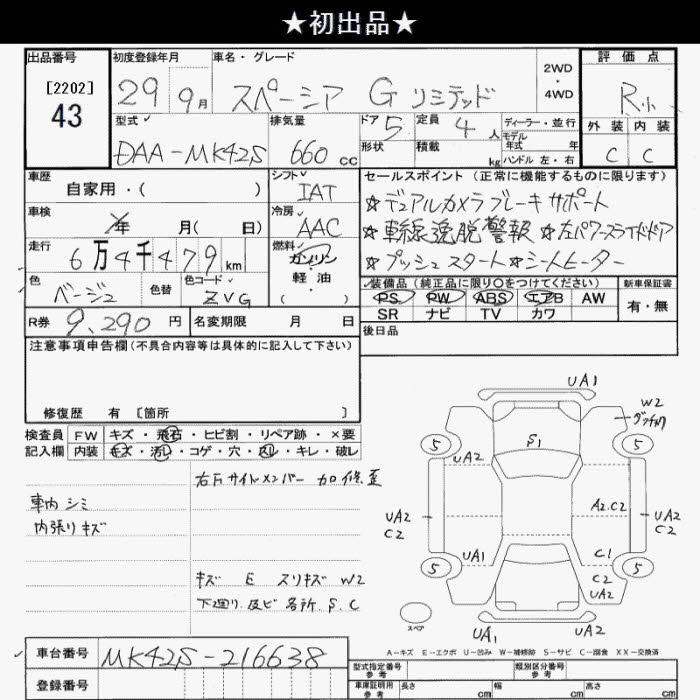 ★初出品★
出品番号
[2202]
43
初度登録年月
29 9月
車名・グレード
スペーシア G リミテッド
2WD
・
4WD
評価点
R小
外装 内装
C C
型式
DAA-MK42S
排気量
660 cc
ドア 5
形状
定員 4 人
積載 kg
ディーラー・並行
モデル
年式 年
ハンドル 左・右
車歴
自家用・( )
シフト
IAT
車検
年 月( 日)
冷房
AAC
走行
6万4千479km
燃料
ガソリン
軽油
・
色
ベージュ
色替
色コード
ZVG
R券 9,290 円
名変期限 月 日
セールスポイント (正常に機能するものに限ります)
☆デュアルカメラブレーキサポート
☆車線逸脱警報 ☆左パワースライドドア
☆プッシュスタート☆シートヒーター
装備品(純正品に限り○をつけてください)
新車保証書
PS PW ABS エアB AW
SR ナビ TV カワ
有・無
後日品
注意事項申告欄(不具合内容等は具体的に記入して下さい)
修復歴 有 [箇所 ]
検査員
記入欄
FW キズ・飛石・ヒビ割・リペア跡・×要
内装 キズ・汚レ・コゲ・穴・スレ・キレ・破レ
車内シミ
内張りキズ
右Fサイドメンバー 加修歪
キズ E スリキズ W2
下廻り及ビ各所 S.C
UA1
W2
S1
5
5
UA2
UA2
C2
A2.C2
UA2
C2
UA1
C1
C2
UA2
5
5
スペア
UA1
UA2
A-キズ E-エクボ U-凹み W-補修跡 S-サビ C-腐食 XX-交換済
車台番号 MK42S-216638
登録番号
型式指定番号
参考
類別区分番号
参考
車庫証明用
参考
長さ cm
幅 cm
高さ cm